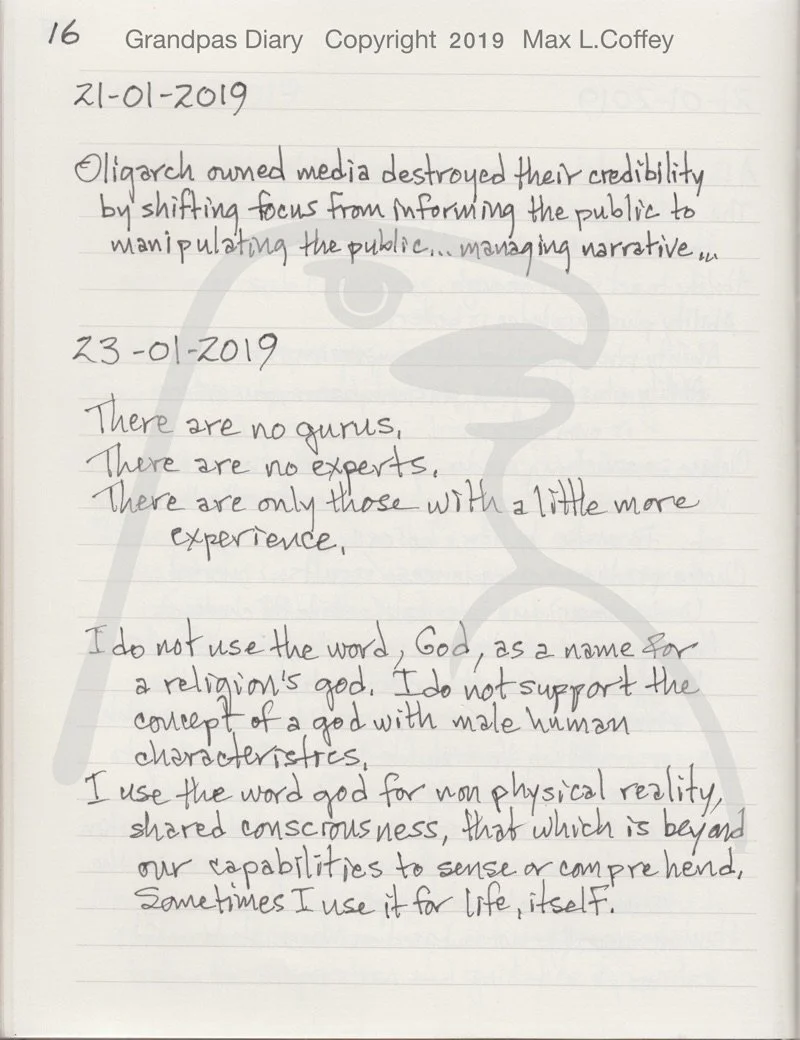 16 Grandpas Diary Copyright 2019 Max L.Coffey
21-01-2019
Oligarch owned media destroyed their credibility
by shifting focus from informing the public to
manipulating the public... managing narrative...
23-01-2019
There are no gurus.
There are no experts.
There are only those with a little more
experience.
I do not use the word, God, as a name for
a religion's god. I do not support the
concept of a god with male human
characteristics.
I use the word god for non physical reality,
shared consciousness, that which is beyond
our capabilities to sense or comprehend.
Sometimes I use it for life, itself.